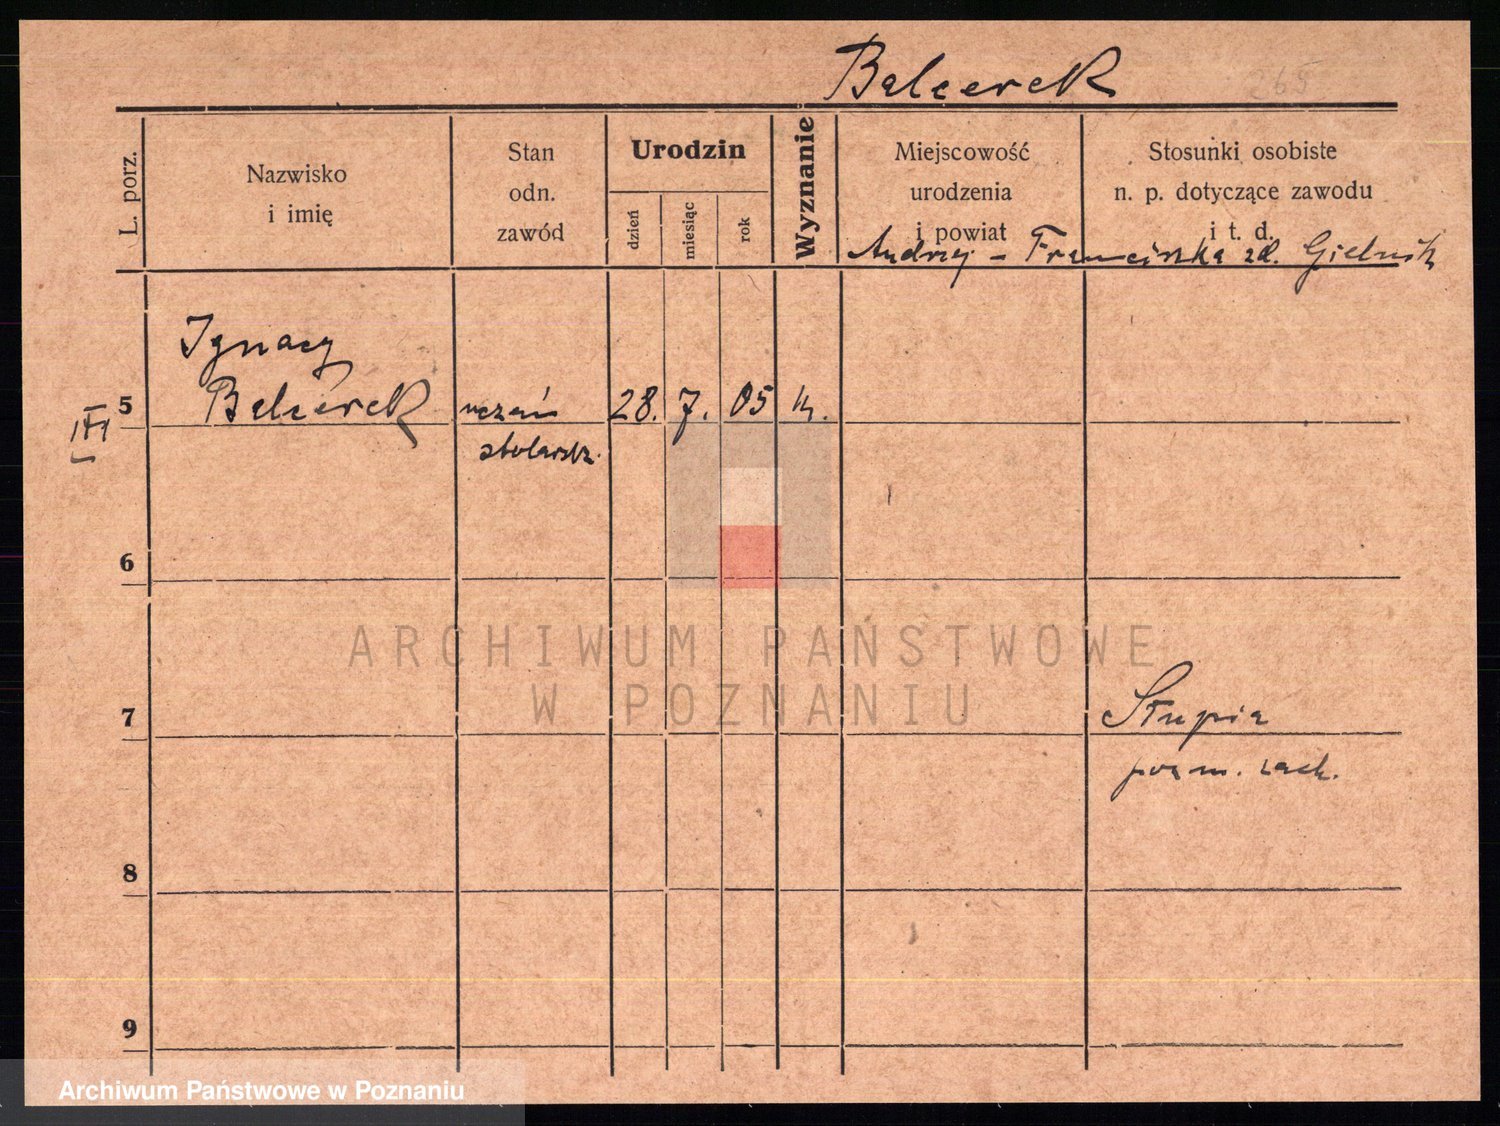 Balcerek
265
L. porz.
Nazwisko
i imię
Stan
odn.
zawód
Urodzin
dzień
miesiąc
rok
Wyznanie
Miejscowość
urodzenia
i powiat
Stosunki osobiste
n. p. dotyczące zawodu
i t. d.
Andrzej - Franciszka zd. Gielnik
Ignacy
5 Balcerek uczeń 28. 7. 05 k.
stolarsk.
6
ARCHIWUM PAŃSTWOWE
W POZNANIU
7 Słupia
pozn. zach.
8
9
Archiwum Państwowe w Poznaniu